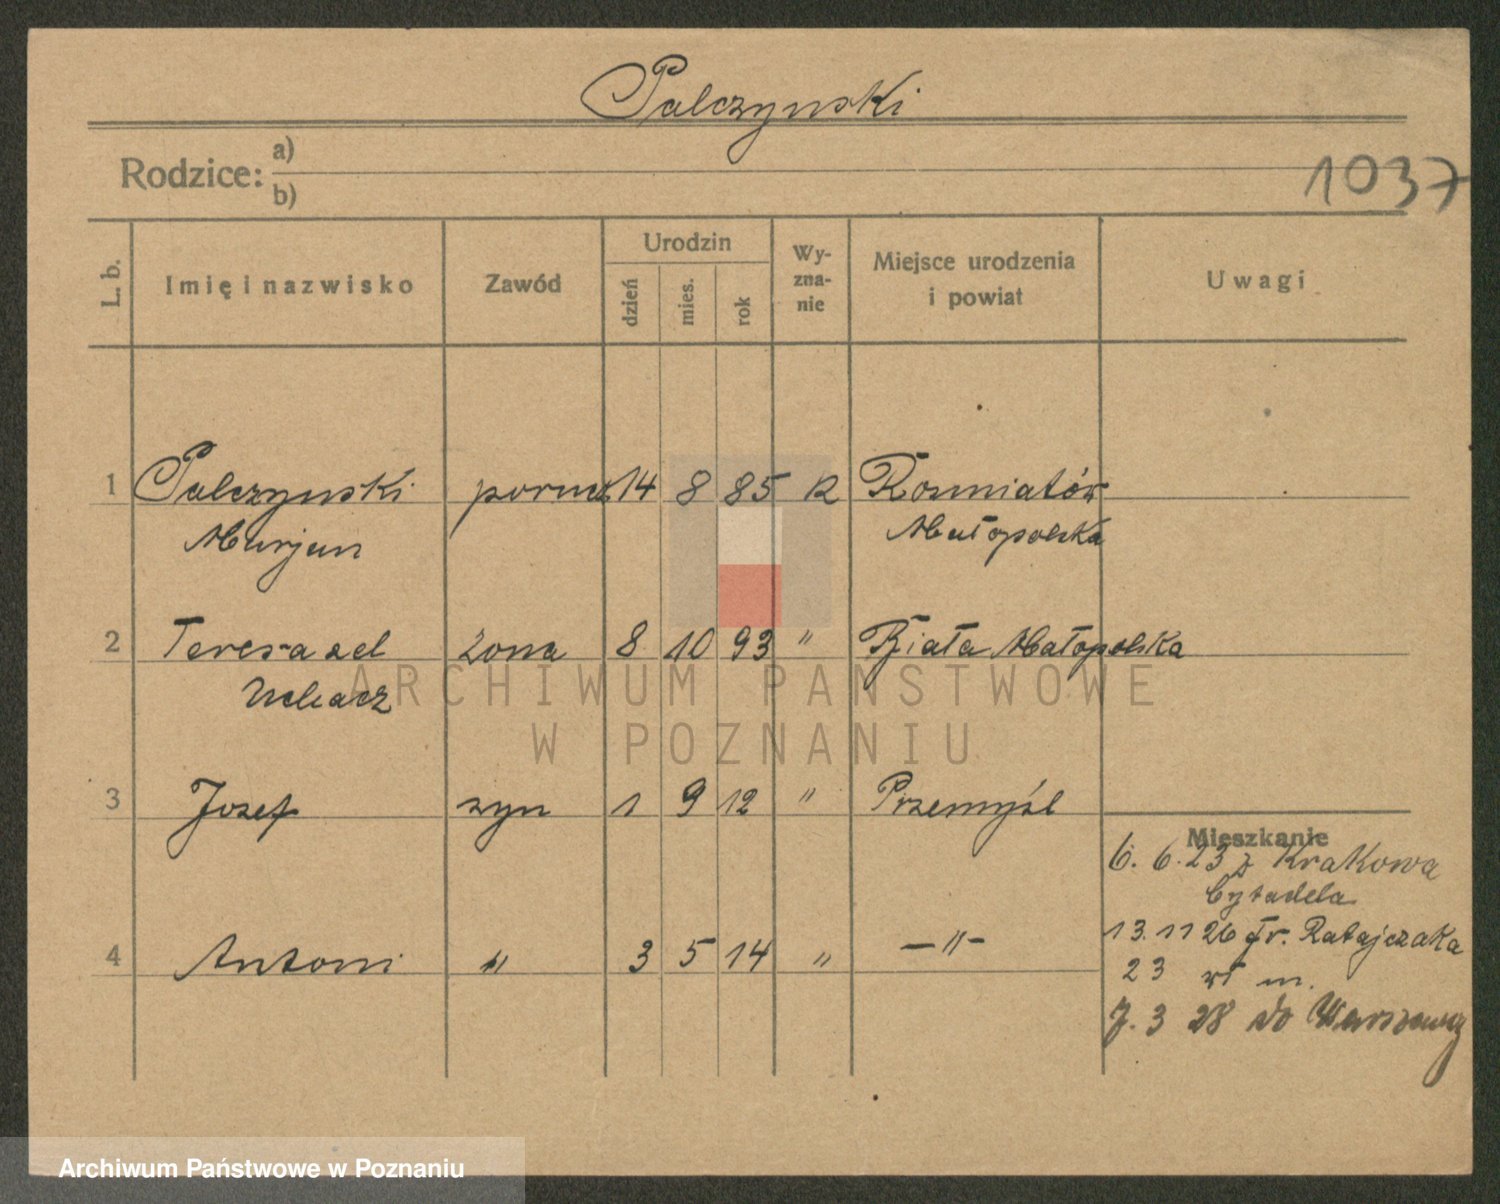 Palczynski
Rodzice: a)
b)
1037
L. b.
Imię i nazwisko
Zawód
Urodzin
dzień
mies.
rok
Wy-
zna-
nie
Miejsce urodzenia
i powiat
Uwagi
1 Palczynski porucz 14 8 85 R Rozniatów
Marjan Małopolska
2 Teresa zel żona 8 10 93 " Biała Małopolska
3 Jozef syn 1 9 12 " Przemyśl
Mieszkanie
6. 6. 23 z Krakowa
Cytadela
4 Antoni " 3 5 14 " -"-
13. 11 26 Fr. Ratajczaka
23 wł m.
7. 3 28 do Warszawy
ARCHIWUM PAŃSTWOWE
W POZNANIU
Archiwum Państwowe w Poznaniu